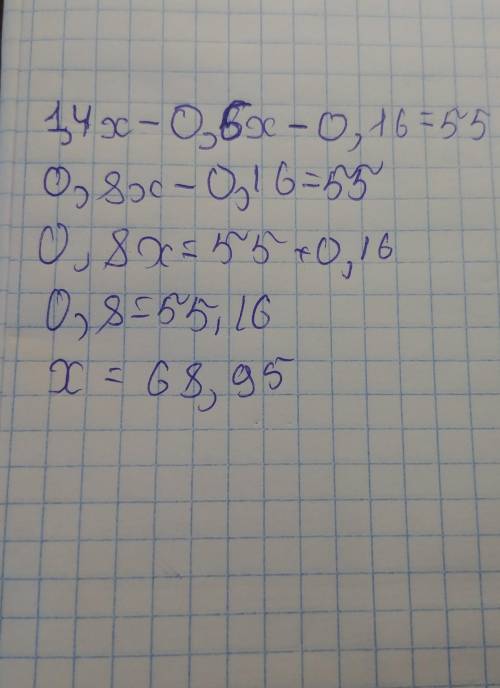 1,4x - 0,6x - 0,16 = 55
0,8x - 0,16 = 55
0,8x = 55 + 0,16
0,8 = 55,16
x = 68,95